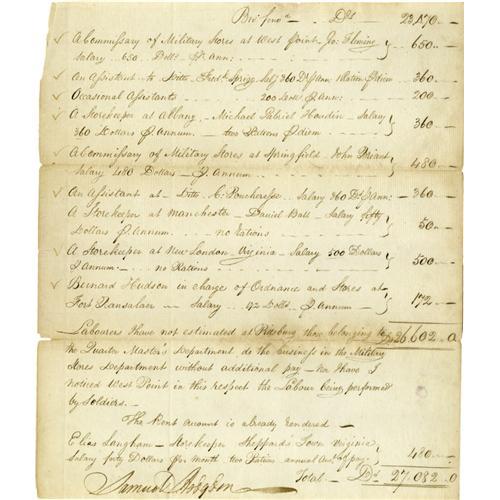 Bro.t forw.d - - D.ls 23,170 --
A Commissary of Military Stores at West Point - Jo: Fleming
Salary - 650 Doll.s P Ann: - - 650 --
An Assistant to Ditto - Fred.k Sprigg Sal.y 360 D.s P Ann: 1 Ration P diem 360 --
Occasional Assistants - - 200 P Ann: - - 200 --
A Storekeeper at Albany - Michael Gabriel Houdin - Salary
360 Dollars P Annum. - two Rations P diem 360 --
A Commissary of Military Stores at Springfield John Bryant
Salary 480 Dollars - P Annum. - - 480 --
An Assistant at - Ditto - Salary 360 D.s P Ann: - 360 --
A Storekeeper at Manchester - Daniel Ball - Salary fifty
Dollars P Annum - - no Rations - - 50 --
A Storekeeper at New London - Virginia - Salary 500 Dollars
P Annum: - - no Rations - - 500 --
Bernard Hudson in charge of Ordnance and Stores at
Fort Ransalaer - Salary - 172 Doll.s - P Annum - 172 --
Labourers I have not estimated at those belonging to 26,602 .. 0
the Quarter Master's Department do the business in the Military
Stores Department without additional pay - Nor have I
noticed West Point in this respect the Labour being performed
by Soldiers. -
The Rent account is already rendered -
Elias Langham - Storekeeper Sheppards Town Virginia
Salary forty Dollars P month two Rations annual Am.t of pay 480 .. 0
Total - D.s 27,082 .. 0
Samuel Hodgdon